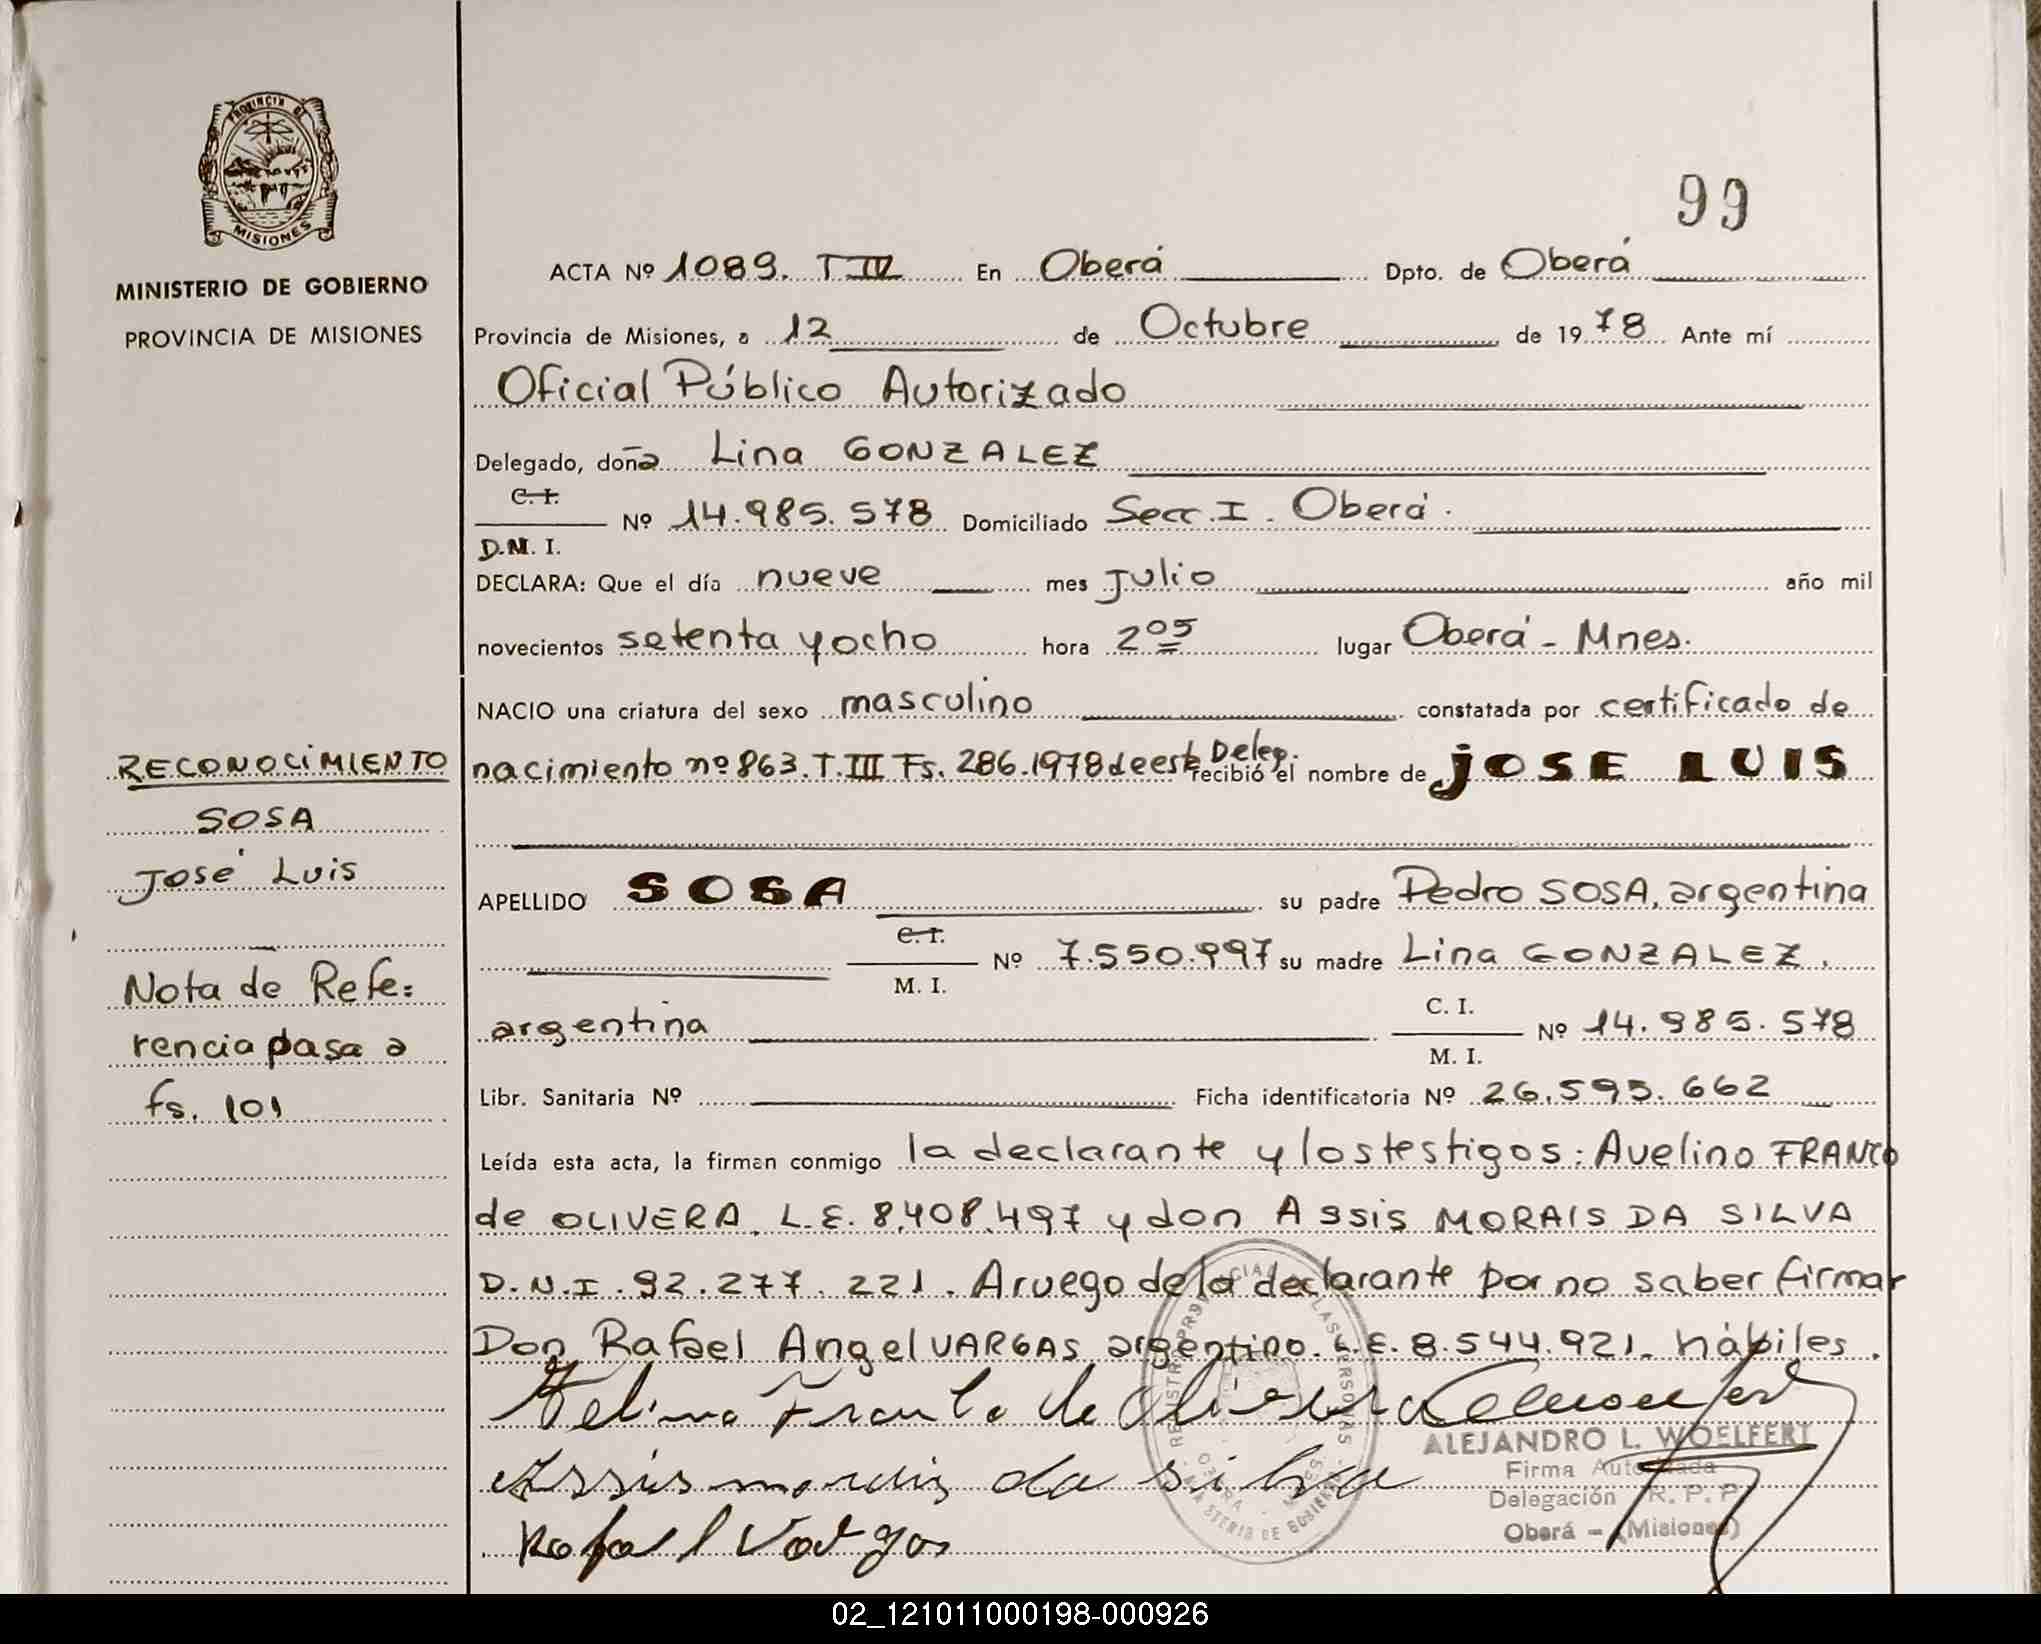 99
PROVINCIA DE
MISIONES
MINISTERIO DE GOBIERNO
PROVINCIA DE MISIONES
ACTA Nº 1089. T IV En Oberá Dpto. de Oberá
Provincia de Misiones, a 12 de Octubre de 1978 Ante mí
Oficial Público Autorizado
Delegado, doña Lina GONZALEZ
C. I.
Nº 14.985.578 Domiciliado Secc. I. Oberá.
D.N. I.
DECLARA: Que el día nueve mes Julio año mil
novecientos setenta y ocho hora 2 05 lugar Oberá - Mnes.
NACIO una criatura del sexo masculino constatada por certificado de
nacimiento nº 863. T. III Fs. 286. 1978 de este Deleg. recibió el nombre de JOSE LUIS
APELLIDO SOSA su padre Pedro SOSA, argentina
C. I.
Nº 7.550.997 su madre Lina GONZALEZ.
M. I.
C. I.
argentina Nº 14.985.578
M. I.
Libr. Sanitaria Nº Ficha identificatoria Nº 26.595.662
Leída esta acta, la firman conmigo la declarante y los testigos: Avelino FRANCO
de OLIVERA, L.E. 8.408.497 y don Assis MORAIS DA SILVA
D.N.I. 92.277.221. A ruego de la declarante por no saber firmar
Don Rafael Angel VARGAS argentino. L.E. 8.544.921. hábiles.
RECONOCIMIENTO
SOSA
José Luis
Nota de Refe:
rencia pasa a
fs. 101
Assis morais da silva
Rafael Vargas
ALEJANDRO L. WOELFERT
Firma Autorizada
Delegación R. P. P.
Oberá - (Misiones)
02_121011000198-000926